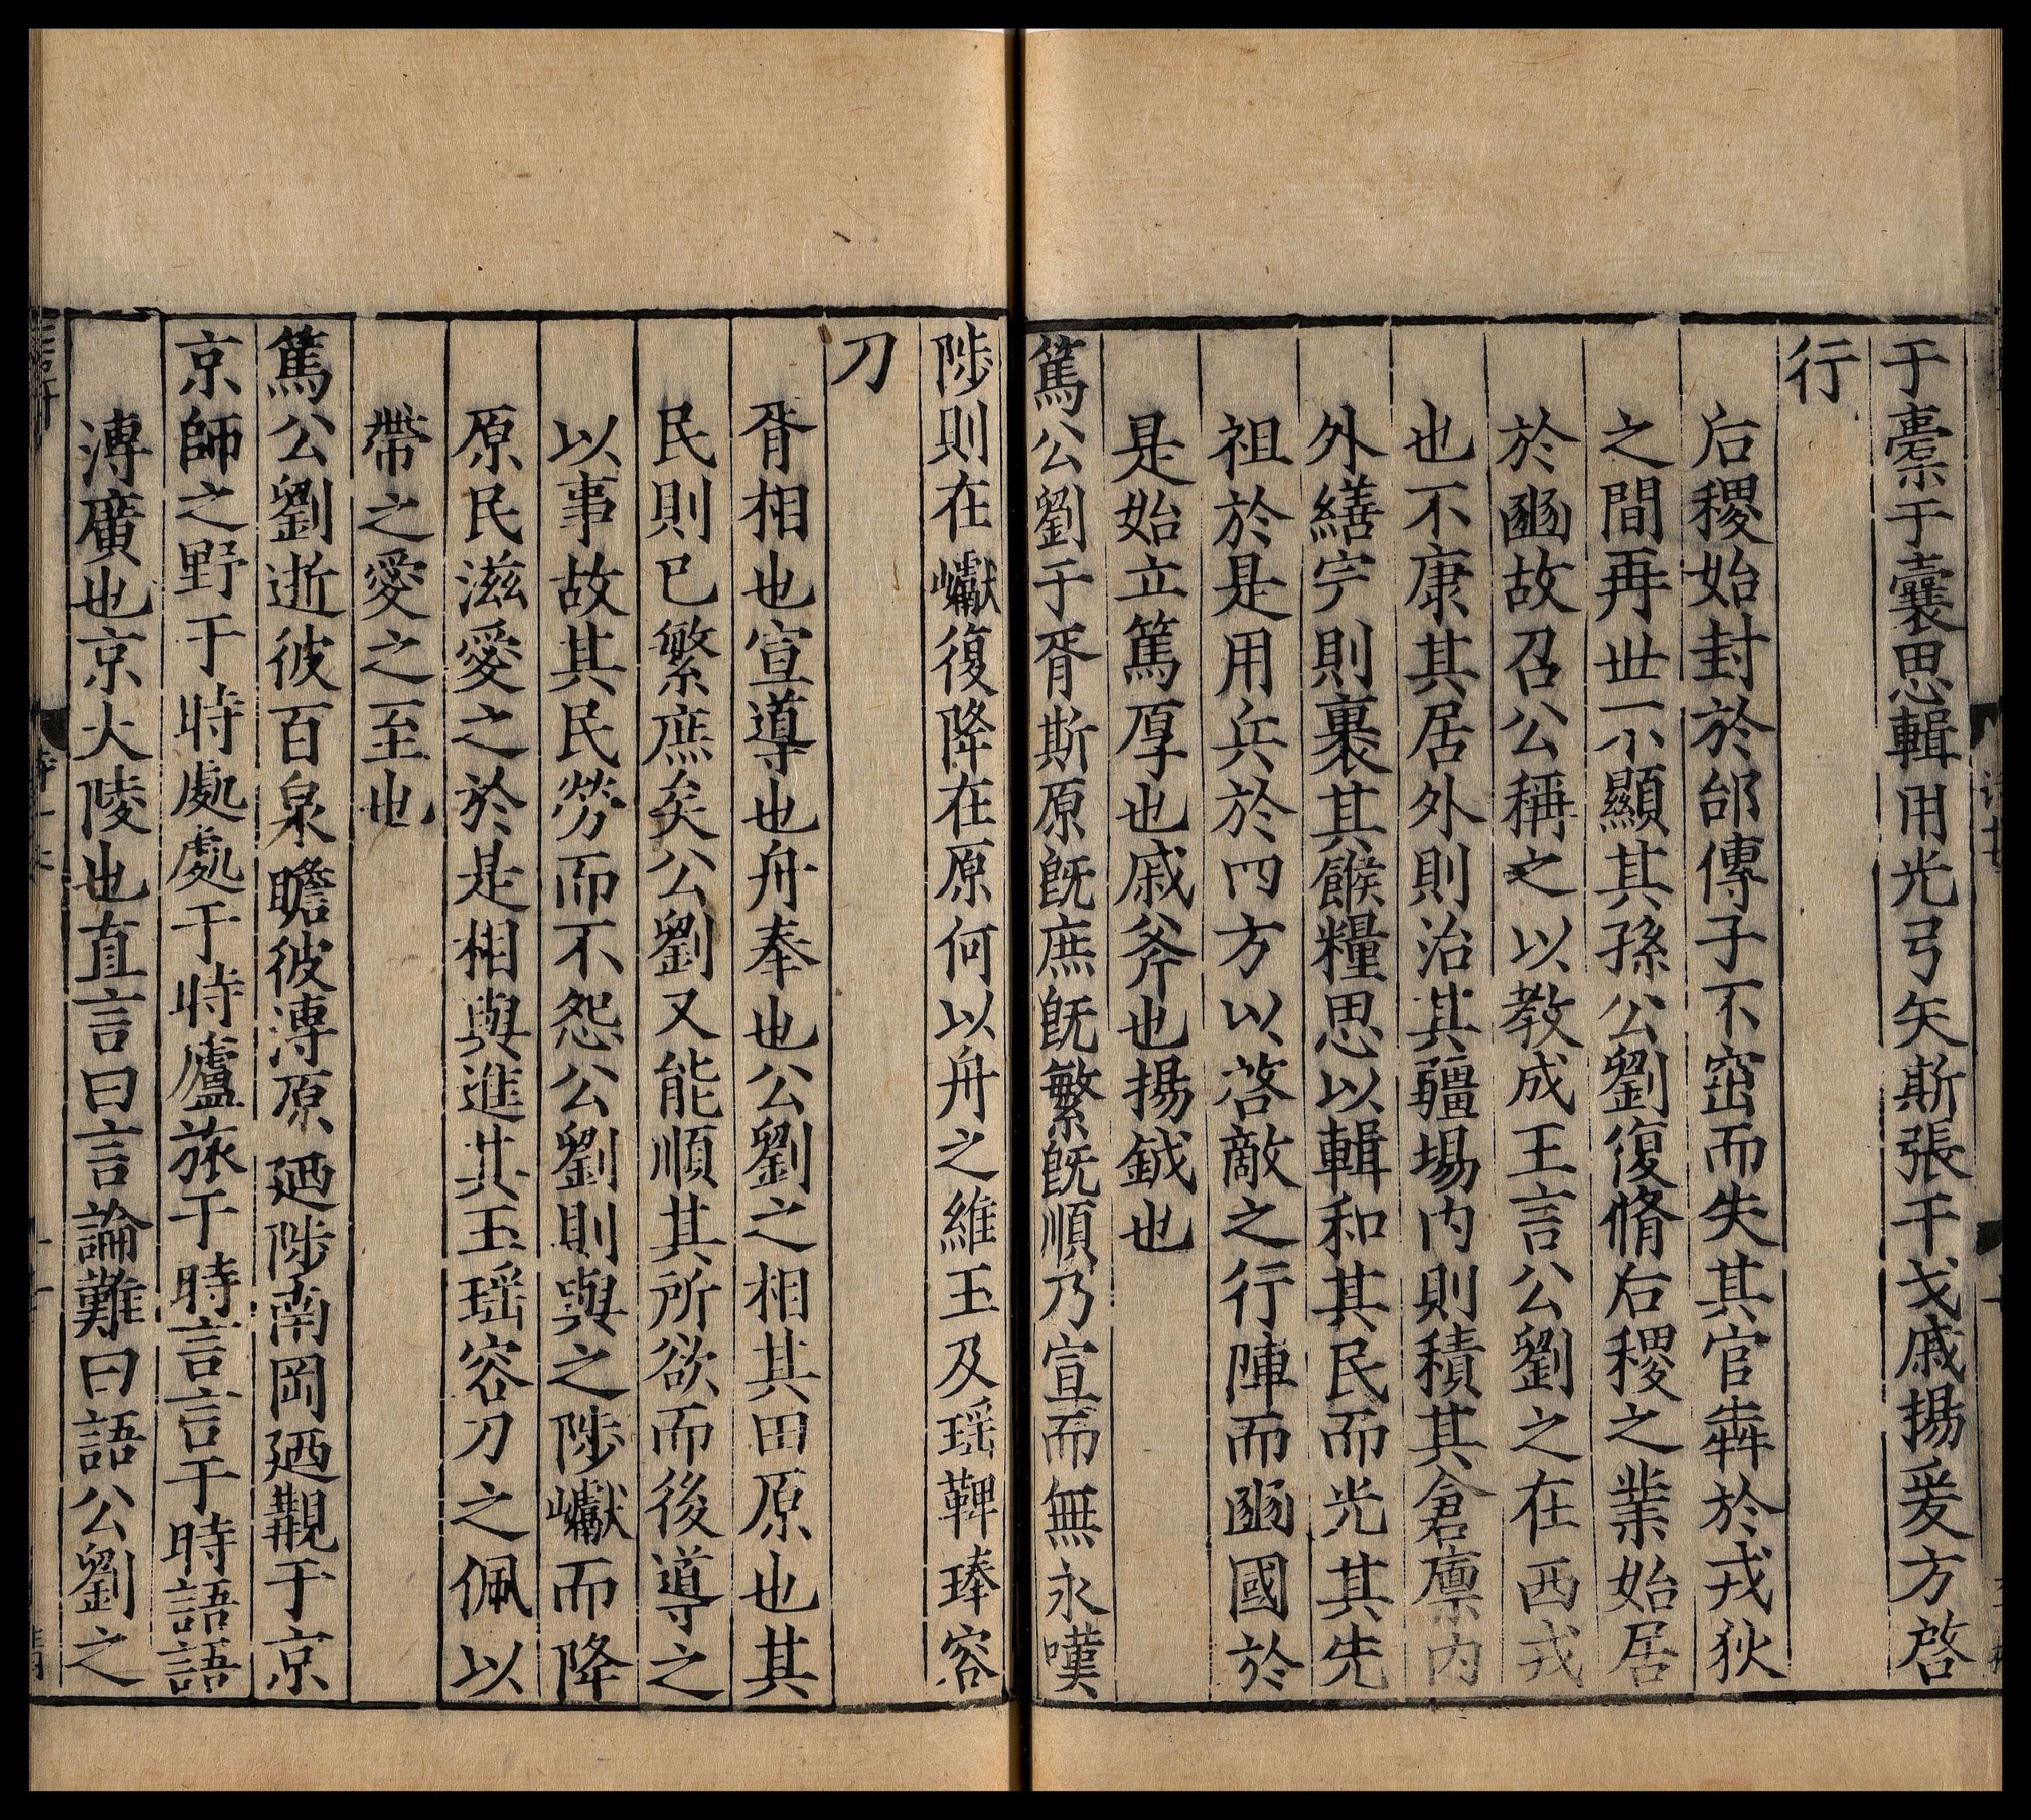 于橐于囊思輯用光弓矢斯張干戈戚揚爰方啓
行
后稷始封於邰傳子不窋而失其官犇於戎狄
之間再世不顯其孫公劉復脩后稷之業始居
於豳故召公稱之以教成王言公劉之在西戎
也不康其居外則治其疆埸内則積其倉廪内
外繕完則裹其餱糧思以輯和其民而光其先
祖於是用兵於四方以啓敵之行陣而豳國於
是始立篤厚也戚斧也揚鉞也
篤公劉于胥斯原旣庶旣繁旣順乃宣而無永嘆
陟則在巘復降在原何以舟之維玉及瑶鞞琫容
刀
胥相也宣導也舟奉也公劉之相其田原也其
民則已繁庶矣公劉又能順其所欲而後導之
以事故其民勞而不怨公劉則與之陟巘而降
原民滋愛之於是相與進其玉瑶容刀之佩以
帶之愛之至也
篤公劉逝彼百泉瞻彼溥原廼陟南岡廼覯于京
京師之野于時處處于時廬旅于時言言于時語語
溥廣也京大陵也直言曰言論難曰語公劉之